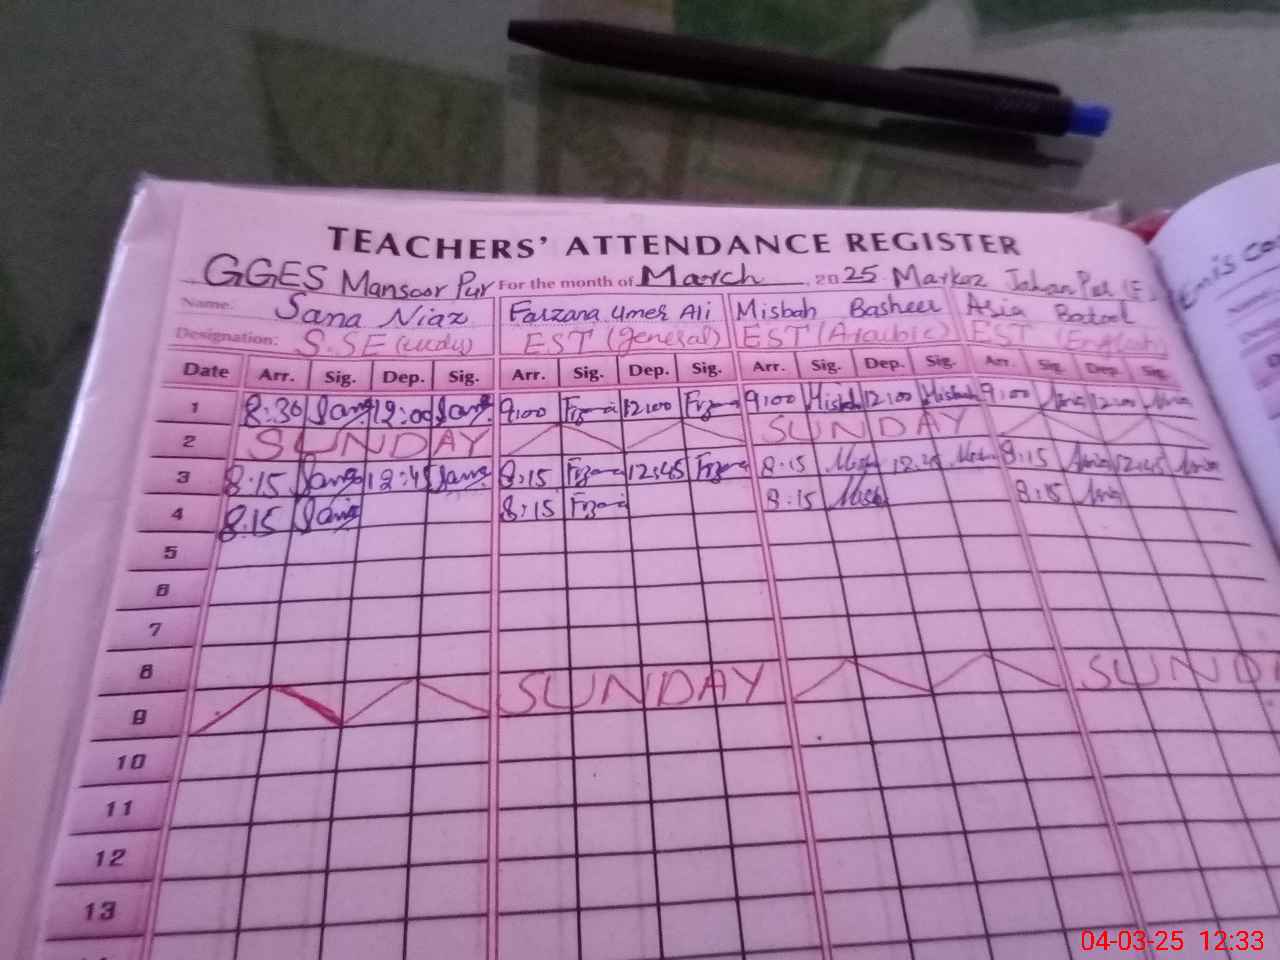 TEACHERS' ATTENDANCE REGISTER
GGES Mansoor Pur For the month of March, 2025. Markaz Jahan Pur (F)
Name: Sana Niaz Farzana Umer Ali Misbah Basheer Asia Batool
Designation: S.SE (urdu) EST (general) EST (Arabic) EST (English)
Date Arr. Sig. Dep. Sig. Arr. Sig. Dep. Sig. Arr. Sig. Dep. Sig. Arr. Sig. Dep. Sig.
1 8:30 Sana 12:00 Sana 9:00 12:00 9:00 Misbah 12:00 Misbah 9:00 Asia 12:00 Asia
2 SUNDAY SUNDAY
3 8:15 Sana 12:45 Sana 8:15 12:45 8:15 12:45 8:15 Asia 12:45 Asia
4 8:15 Sana 8:15 8:15 8:15 Asia
5
6
7
8
9 SUNDAY SUNDA
10
11
12
13
04-03-25 12:33